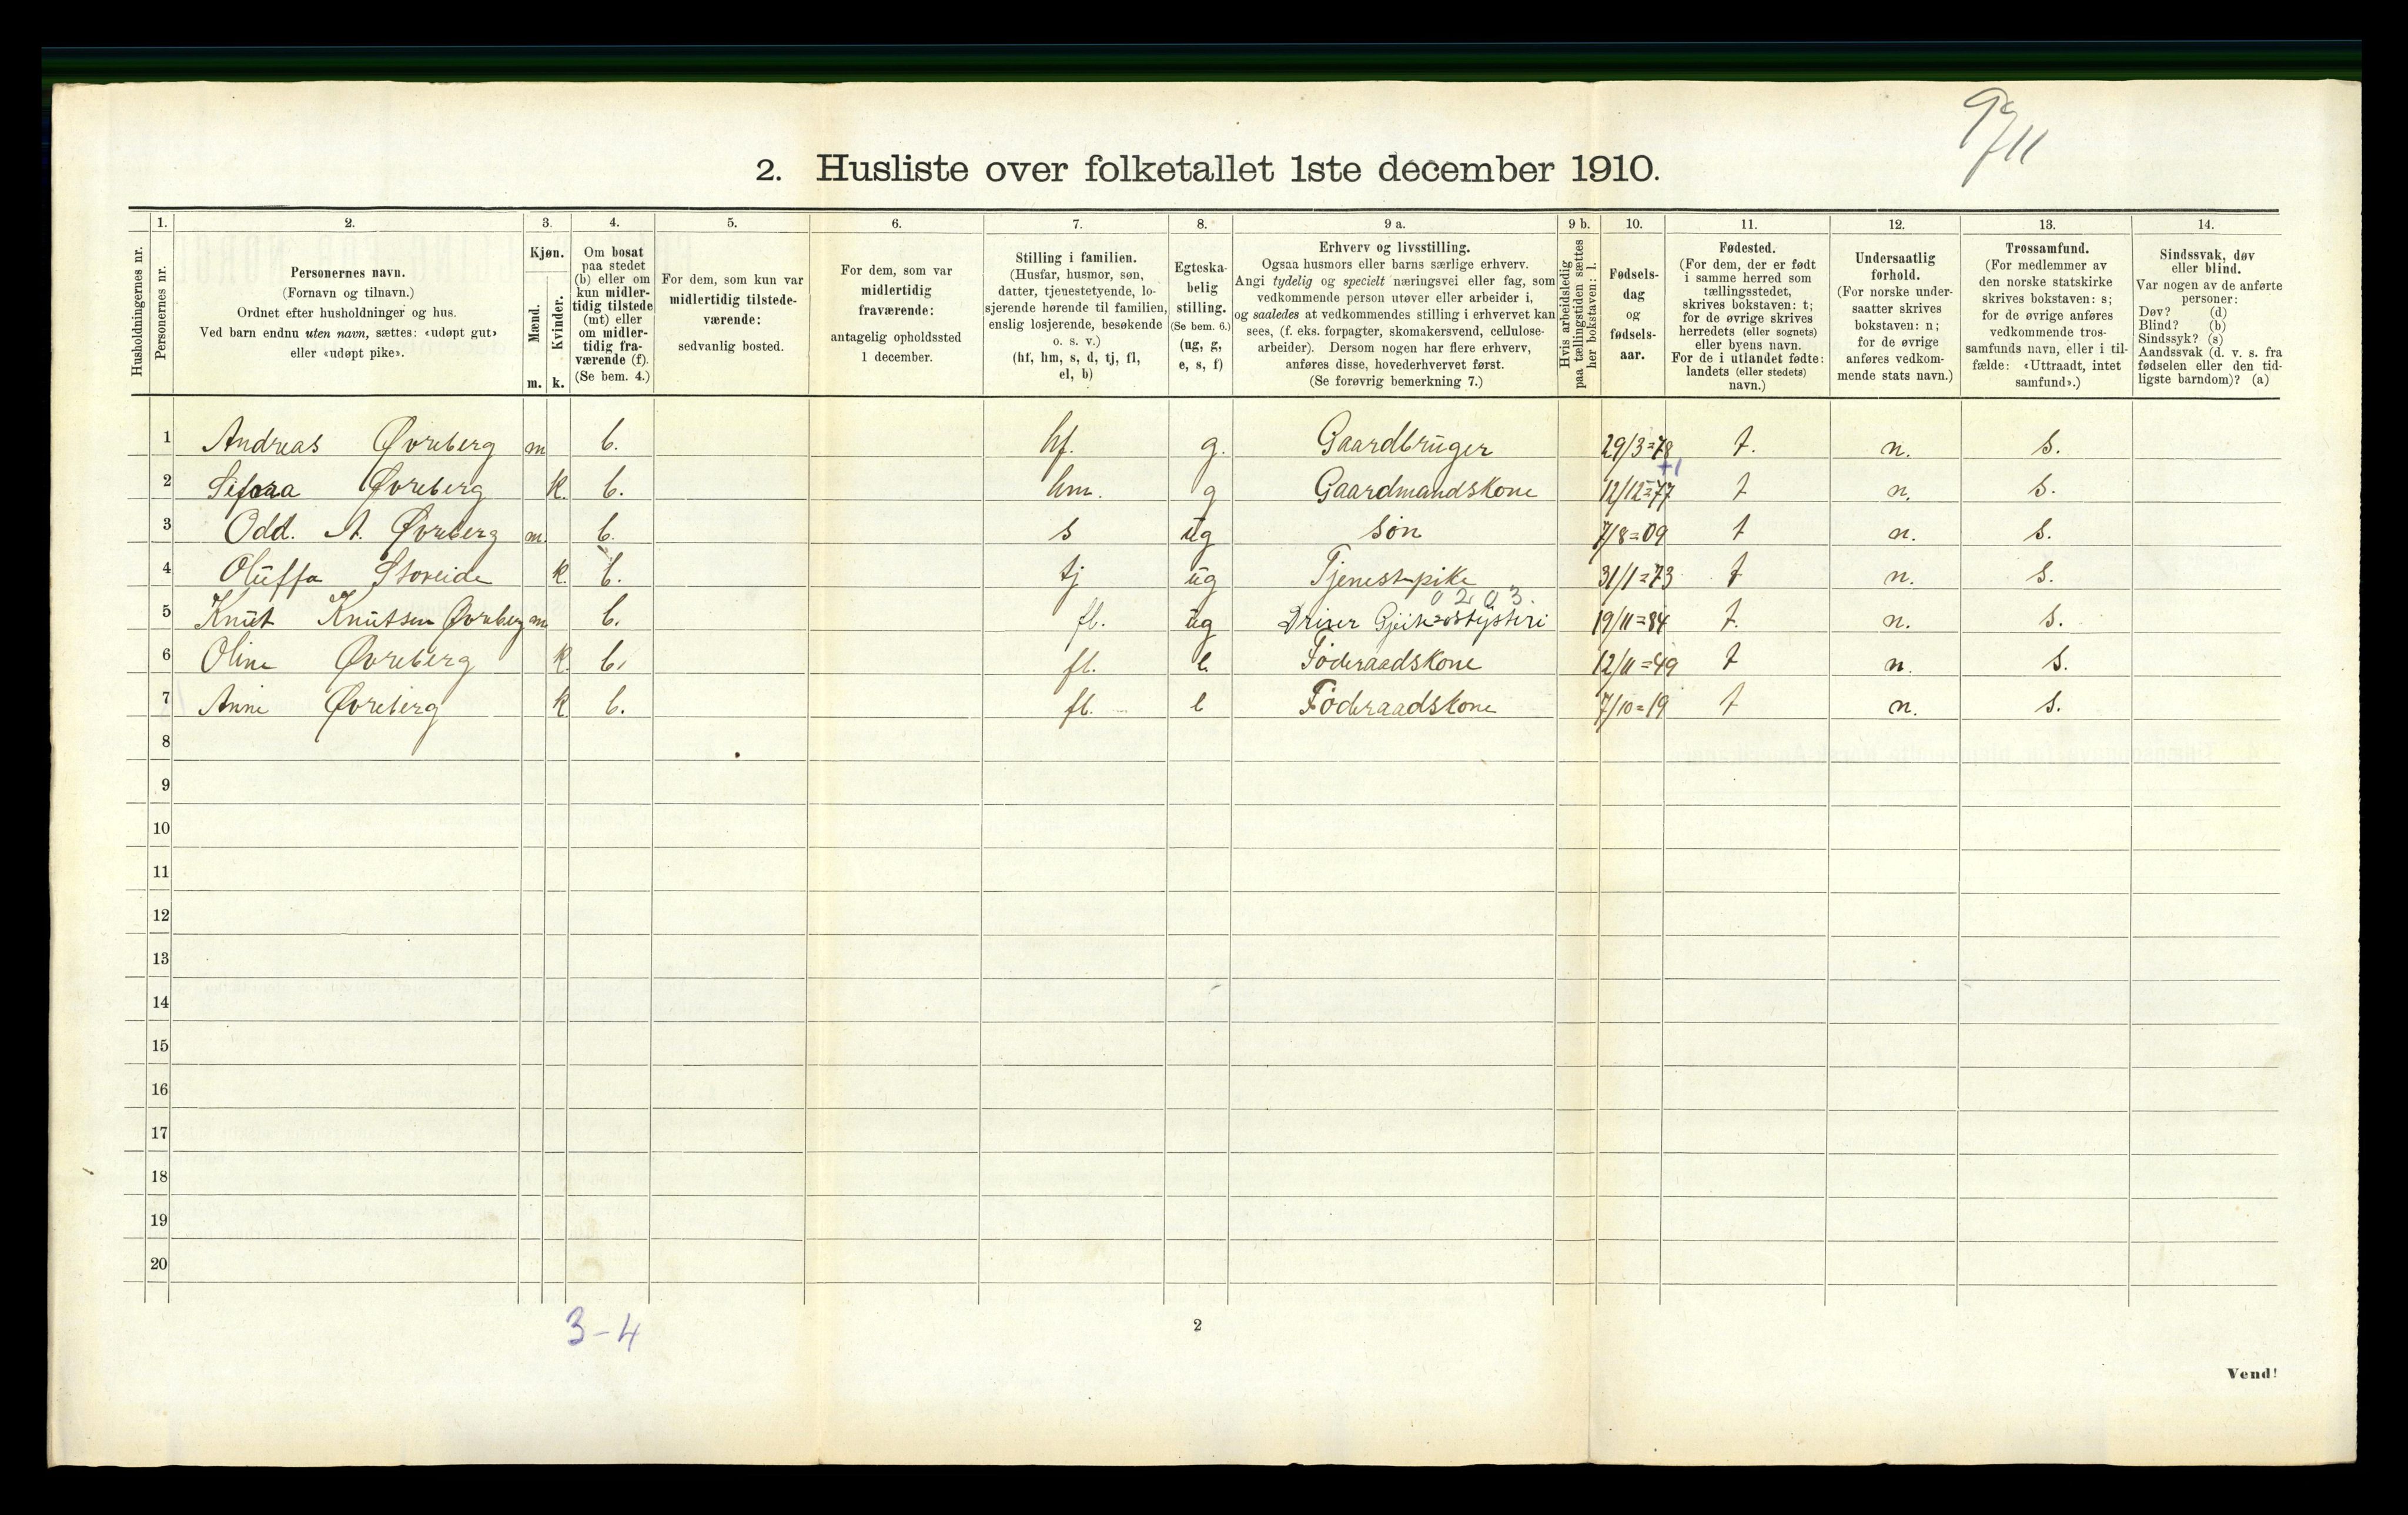 9711
2. Husliste over folketallet 1ste december 1910.
Husholdningernes nr.
1. Personernes nr.
2. Personernes navn. (Fornavn og tilnavn.) Ordnet efter husholdninger og hus. Ved barn endnu uten navn, sættes: «udøpt gut» eller «udøpt pike».
3. Kjøn. Mænd. m. Kvinder. k.
4. Om bosat paa stedet (b) eller om kun midlertidig tilstede (mt) eller om midlertidig fraværende (f). (Se bem. 4.)
5. For dem, som kun var midlertidig tilstedeværende: sedvanlig bosted.
6. For dem, som var midlertidig fraværende: antagelig opholdssted 1 december.
7. Stilling i familien. (Husfar, husmor, søn, datter, tjenestetyende, losjerende hørende til familien, enslig losjerende, besøkende o. s. v.) (hf, hm, s, d, tj, fl, el, b)
8. Egteskabelig stilling. (Se bem. 6.) (ug, g, e, s, f)
9 a. Erhverv og livsstilling. Ogsaa husmors eller barns særlige erhverv. Angi tydelig og specielt næringsvei eller fag, som vedkommende person utøver eller arbeider i, og saaledes at vedkommendes stilling i erhvervet kan sees, (f. eks. forpagter, skomakersvend, cellulosearbeider). Dersom nogen har flere erhverv, anføres disse, hovederhvervet først. (Se forøvrig bemerkning 7.)
9 b. Hvis arbeidsledig paa tællingstiden sættes her bokstaven: l.
10. Fødselsdag og fødselsaar.
11. Fødested. (For dem, der er født i samme herred som tællingsstedet, skrives bokstaven: t; for de øvrige skrives herredets (eller sognets) eller byens navn. For de i utlandet fødte: landets (eller stedets) navn.)
12. Undersaatlig forhold. (For norske undersaatter skrives bokstaven: n; for de øvrige anføres vedkommende stats navn.)
13. Trossamfund. (For medlemmer av den norske statskirke skrives bokstaven: s; for de øvrige anføres vedkommende trossamfunds navn, eller i tilfælde: «Uttraadt, intet samfund».)
14. Sindssvak, døv eller blind. Var nogen av de anførte personer: Døv? (d) Blind? (b) Sindssyk? (s) Aandssvak (d. v. s. fra fødselen eller den tidligste barndom)? (a)
1 Andreas Øvreberg m b. hf. g. Gaardbruger 29/3=78 t. n. s.
+1
2 Sefora Øvreberg k. b. hm. g Gaardmandskone 12/12=77 t n. s.
3 Odd. A. Øvreberg m b. s ug søn 7/8=09 t n. s.
4 Oluffa Storeide k. b. tj ug Tjenestpike 31/1=73 t n. s.
0203.
5 Knut Knutsen Øvreberg m b. fl. ug Driver Gjeitostysteri 19/11=84 t. n. s.
6 Oline Øvreberg k. b. fl. e. Føderaadskone 12/11=49 t n. s.
7 Anne Øvreberg k b. fl. e Føderaadskone 7/10=19 t n. s.
8
9
10
11
12
13
14
15
16
17
18
19
20
3-4
2
Vend!